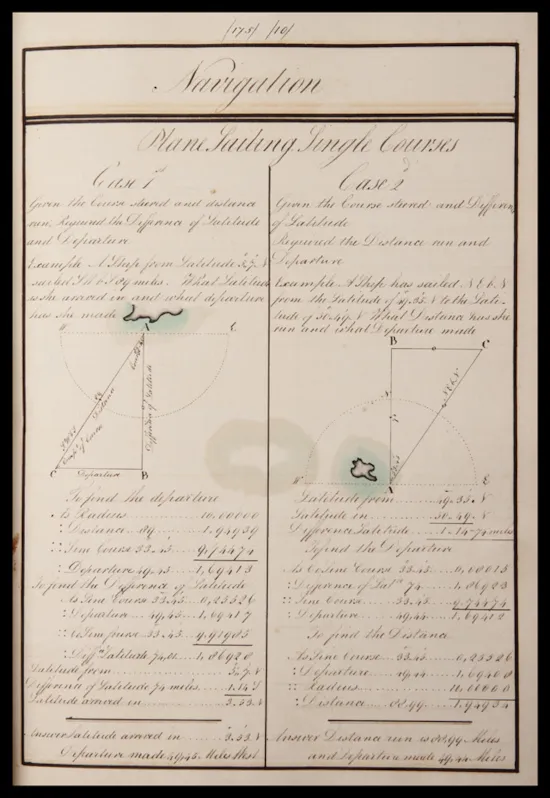 (175) (10)
Navigation
Plane Sailing Single Courses
Case 1st
Given the Course steered and distance
run, Required the Difference of Latitude
and Departure
Example A Ship from Latitude N
sailed 89 miles. What Latitude
is she arrived in and what departure
has she made
W
A
E
Distance
Difference of Latitude
Comp of Course
C
Departure
B
To find the departure
As Radius 10,00000
: Distance 89 1,94939
:: Sine Course 33.45 9,74474
: Departure 49,45 1,69413
To find the Difference of Latitude
As Sine Course 33.45 0,25526
: Departure 49,45 1,69417
:: CoSine 33.45 9,91985
: Diff Latitude 74, 1,86928
Latitude from N
Difference of Latitude 74 miles 1.14 S
Latitude arrived in 3.53 N
Answer Latitude arrived in 3.53 N
Departure made 49,45 Miles West
Case 2d
Given the Course steered and Differen
of Latitude
Required the Distance run and
Departure
Example A Ship has sailed N E b N
from the Latitude of 49.35 N to the Lati-
tude of 50.49 N What Distance has she
run and what Departure made
B
C
N E b N
W
A
E
Latitude from 49.35 N
Latitude in 50.49 N
Difference Latitude 1.14 = 74 miles
To find the Departure
As CoSine Course 33.45 0,08015
: Difference of Lat 74 1,86923
:: Sine Course 33.45 9,74474
: Departure 49.44 1,69412
To find the Distance
As Sine Course 33.45 0,25526
: Departure 49.44 1,69408
:: Radius 10,00000
: Distance 88.99 1,94934
Answer Distance run is 88,99 Miles
and Departure made 49,44 Miles